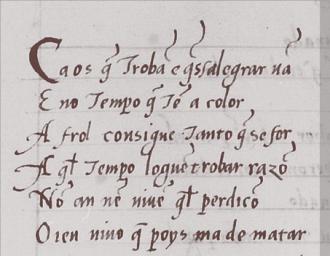 Caos q̃ Troba e q̃ss alegrar uã
E no Tempo q̃ Tẽ a color
A frol consigue Tanto q̃ se for
A q̃l Tempo logue trobar razõ
Nõ an nẽ uiue q̃l perdicõ
Oien uiuo q̃ poys ma de matar